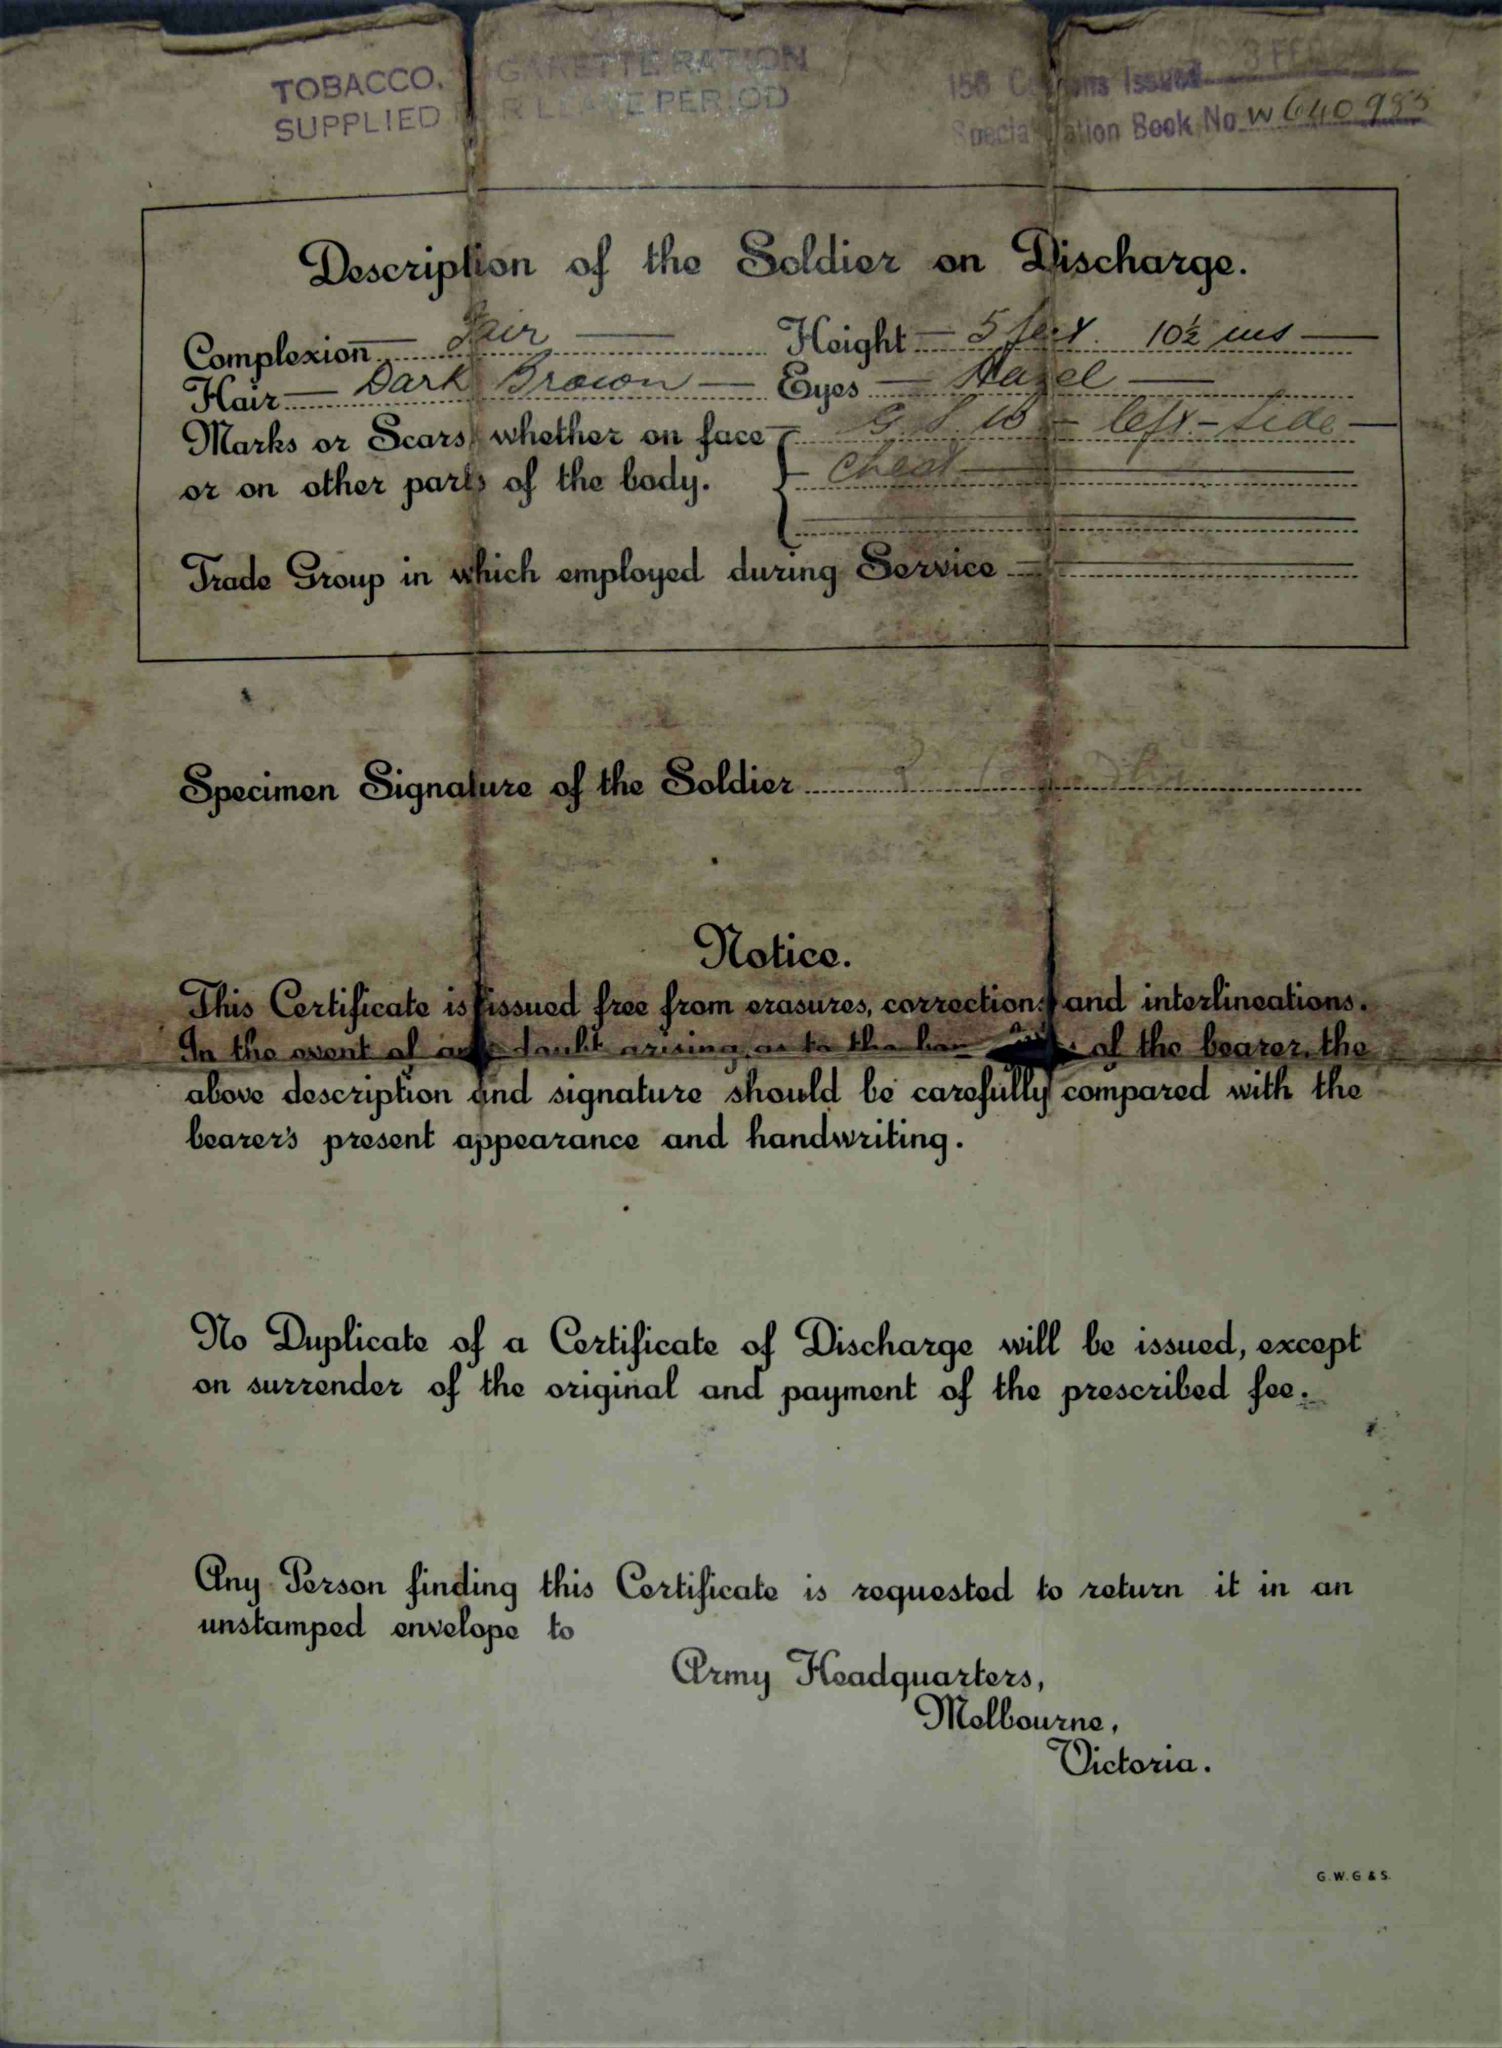 TOBACCO, CIGARETTE RATION
SUPPLIED FOR LEAVE PERIOD
156 Coupons Issued 3 FEB
Special Ration Book No. W 640985
Description of the Soldier on Discharge.
Complexion Fair Height 5 feet. 10½ ins
Hair Dark Brown Eyes Hazel
Marks or Scars, whether on face G.S.W - left - side
or on other parts of the body. Chest
Trade Group in which employed during Service
Specimen Signature of the Soldier
Notice.
This Certificate is issued free from erasures, corrections and interlineations.
In the event of any doubt arising as to the of the bearer, the
above description and signature should be carefully compared with the
bearer's present appearance and handwriting.
No Duplicate of a Certificate of Discharge will be issued, except
on surrender of the original and payment of the prescribed fee.
Any Person finding this Certificate is requested to return it in an
unstamped envelope to
Army Headquarters,
Melbourne,
Victoria.
G.W.G & S.